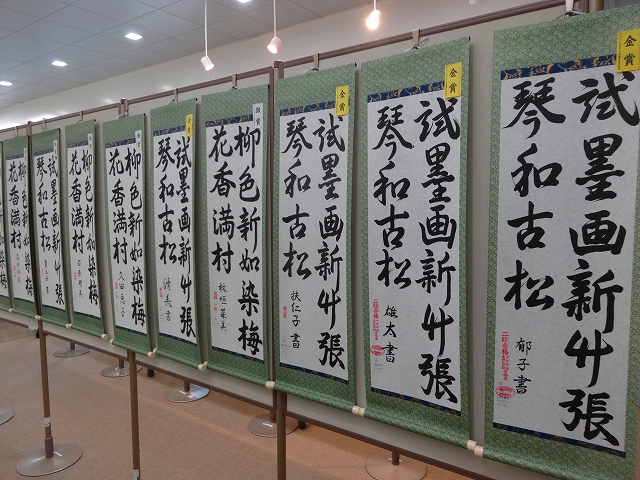 金賞
試墨画新竹張
琴和古松
郁子書
二段合格
金賞
試墨画新竹張
琴和古松
雄太書
二段合格
金賞
試墨画新竹張
琴和古松
銀賞
柳色新如染梅
花香満村
金賞
試墨画新竹張
琴和古松
柳色新如染梅
花香満村
柳色新如染梅
花香満村
試墨画新竹張
琴和古松
柳色新如染梅
花香満村